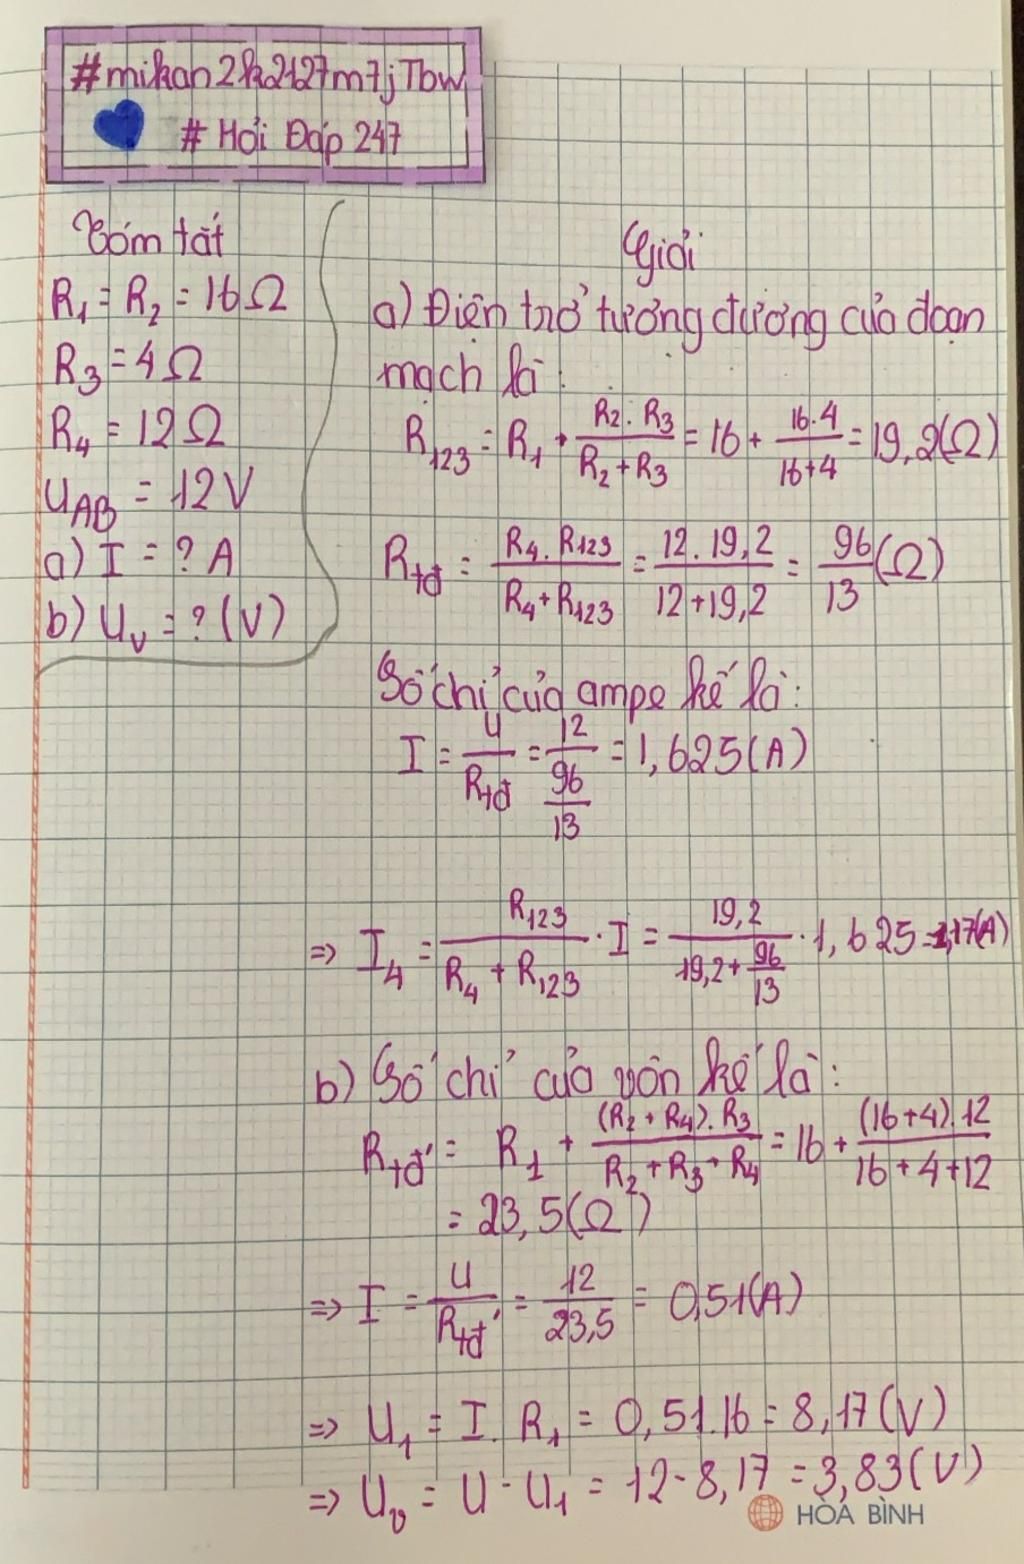 #mikan2k2127m7jTbw
# Hỏi Đáp 247
Tóm tắt
R₁ = R₂ = 16Ω
R₃ = 4Ω
R₄ = 12Ω
U_AB = 12V
a) I = ? A
b) U_v = ? (V)
Giải
a) Điện trở tương đương của đoạn
mạch là:
R₁₂₃ = R₁ + (R₂.R₃)/(R₂+R₃) = 16 + (16.4)/(16+4) = 19,2(Ω)
R_tđ = (R₄.R₁₂₃)/(R₄+R₁₂₃) = (12.19,2)/(12+19,2) = 96/13 (Ω)
Số chỉ của ampe kế là:
I = U/R_tđ = 12/(96/13) = 1,625(A)
=> I₄ = R₁₂₃/(R₄+R₁₂₃) . I = 19,2/(19,2+96/13) . 1,625 = 1,17(A)
b) Số chỉ của vôn kế là:
R_tđ' = R₁ + ((R₂+R₄).R₃)/(R₂+R₃+R₄) = 16 + ((16+4).12)/(16+4+12)
= 23,5(Ω)
=> I = U/R_tđ' = 12/23,5 = 0,51(A)
=> U₁ = I.R₁ = 0,51.16 = 8,17(V)
=> U_v = U - U₁ = 12 - 8,17 = 3,83(V)
HÒA BÌNH